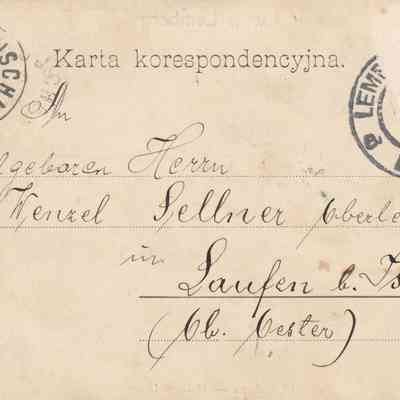 Karta korespondencyjna.
LEMB
ISCHL
An
lgeboren Herrn
Wenzel Sellner Oberle
in
Laufen b. Is
(Ob. Oester)